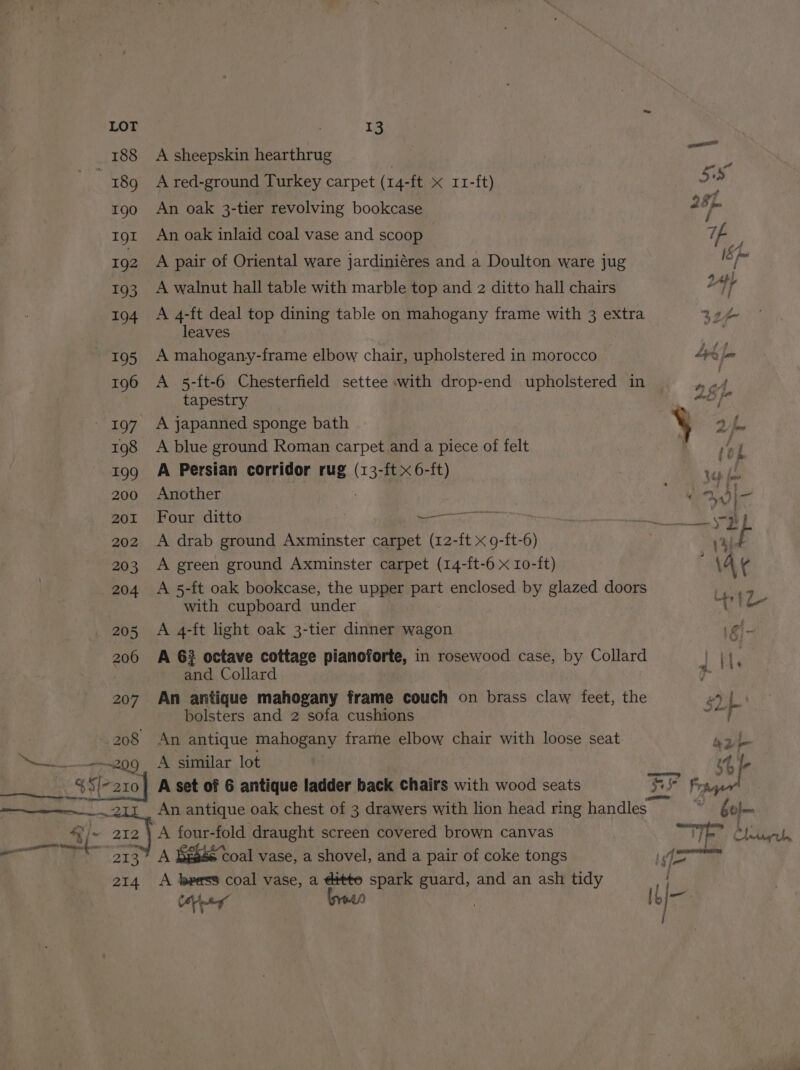 LOT 13
188 A sheepskin hearthrug —
189 A red-ground Turkey carpet (14-ft × 11-ft)
190 An oak 3-tier revolving bookcase 28/-
191 An oak inlaid coal vase and scoop 7/-
192 A pair of Oriental ware jardiniéres and a Doulton ware jug 18/-
193 A walnut hall table with marble top and 2 ditto hall chairs 24/-
194 A 4-ft deal top dining table on mahogany frame with 3 extra 32/-
leaves
195 A mahogany-frame elbow chair, upholstered in morocco
196 A 5-ft-6 Chesterfield settee with drop-end upholstered in
tapestry 28/-
197 A japanned sponge bath 2/-
198 A blue ground Roman carpet and a piece of felt 10/-
199 A Persian corridor rug (13-ft × 6-ft)
200 Another
201 Four ditto
202 A drab ground Axminster carpet (12-ft × 9-ft-6)
203 A green ground Axminster carpet (14-ft-6 × 10-ft)
204 A 5-ft oak bookcase, the upper part enclosed by glazed doors
with cupboard under
205 A 4-ft light oak 3-tier dinner wagon 18/-
206 A 6¾ octave cottage pianoforte, in rosewood case, by Collard
and Collard
207 An antique mahogany frame couch on brass claw feet, the
bolsters and 2 sofa cushions 52/-
208 An antique mahogany frame elbow chair with loose seat 42/-
209 A similar lot
210 A set of 6 antique ladder back chairs with wood seats
211 An antique oak chest of 3 drawers with lion head ring handles 60/-
212 A four-fold draught screen covered brown canvas
213 A brass coal vase, a shovel, and a pair of coke tongs
214 A brass coal vase, a ditto spark guard, and an ash tidy
Copper brass 16/-